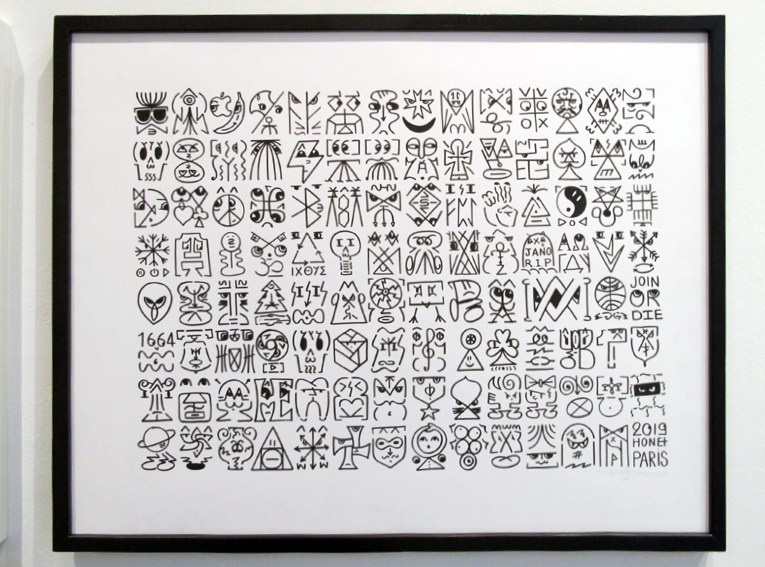 AXA
JANO
R.I.P
ΙΧΘΥΣ
JOIN
OR
DIE
1664
2019
HONET
PARIS